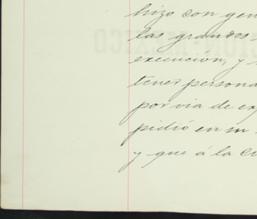 hizo con gen
las grandes
execucion, y
tener persona
por via de ex
pidió en su
y que á la Ce